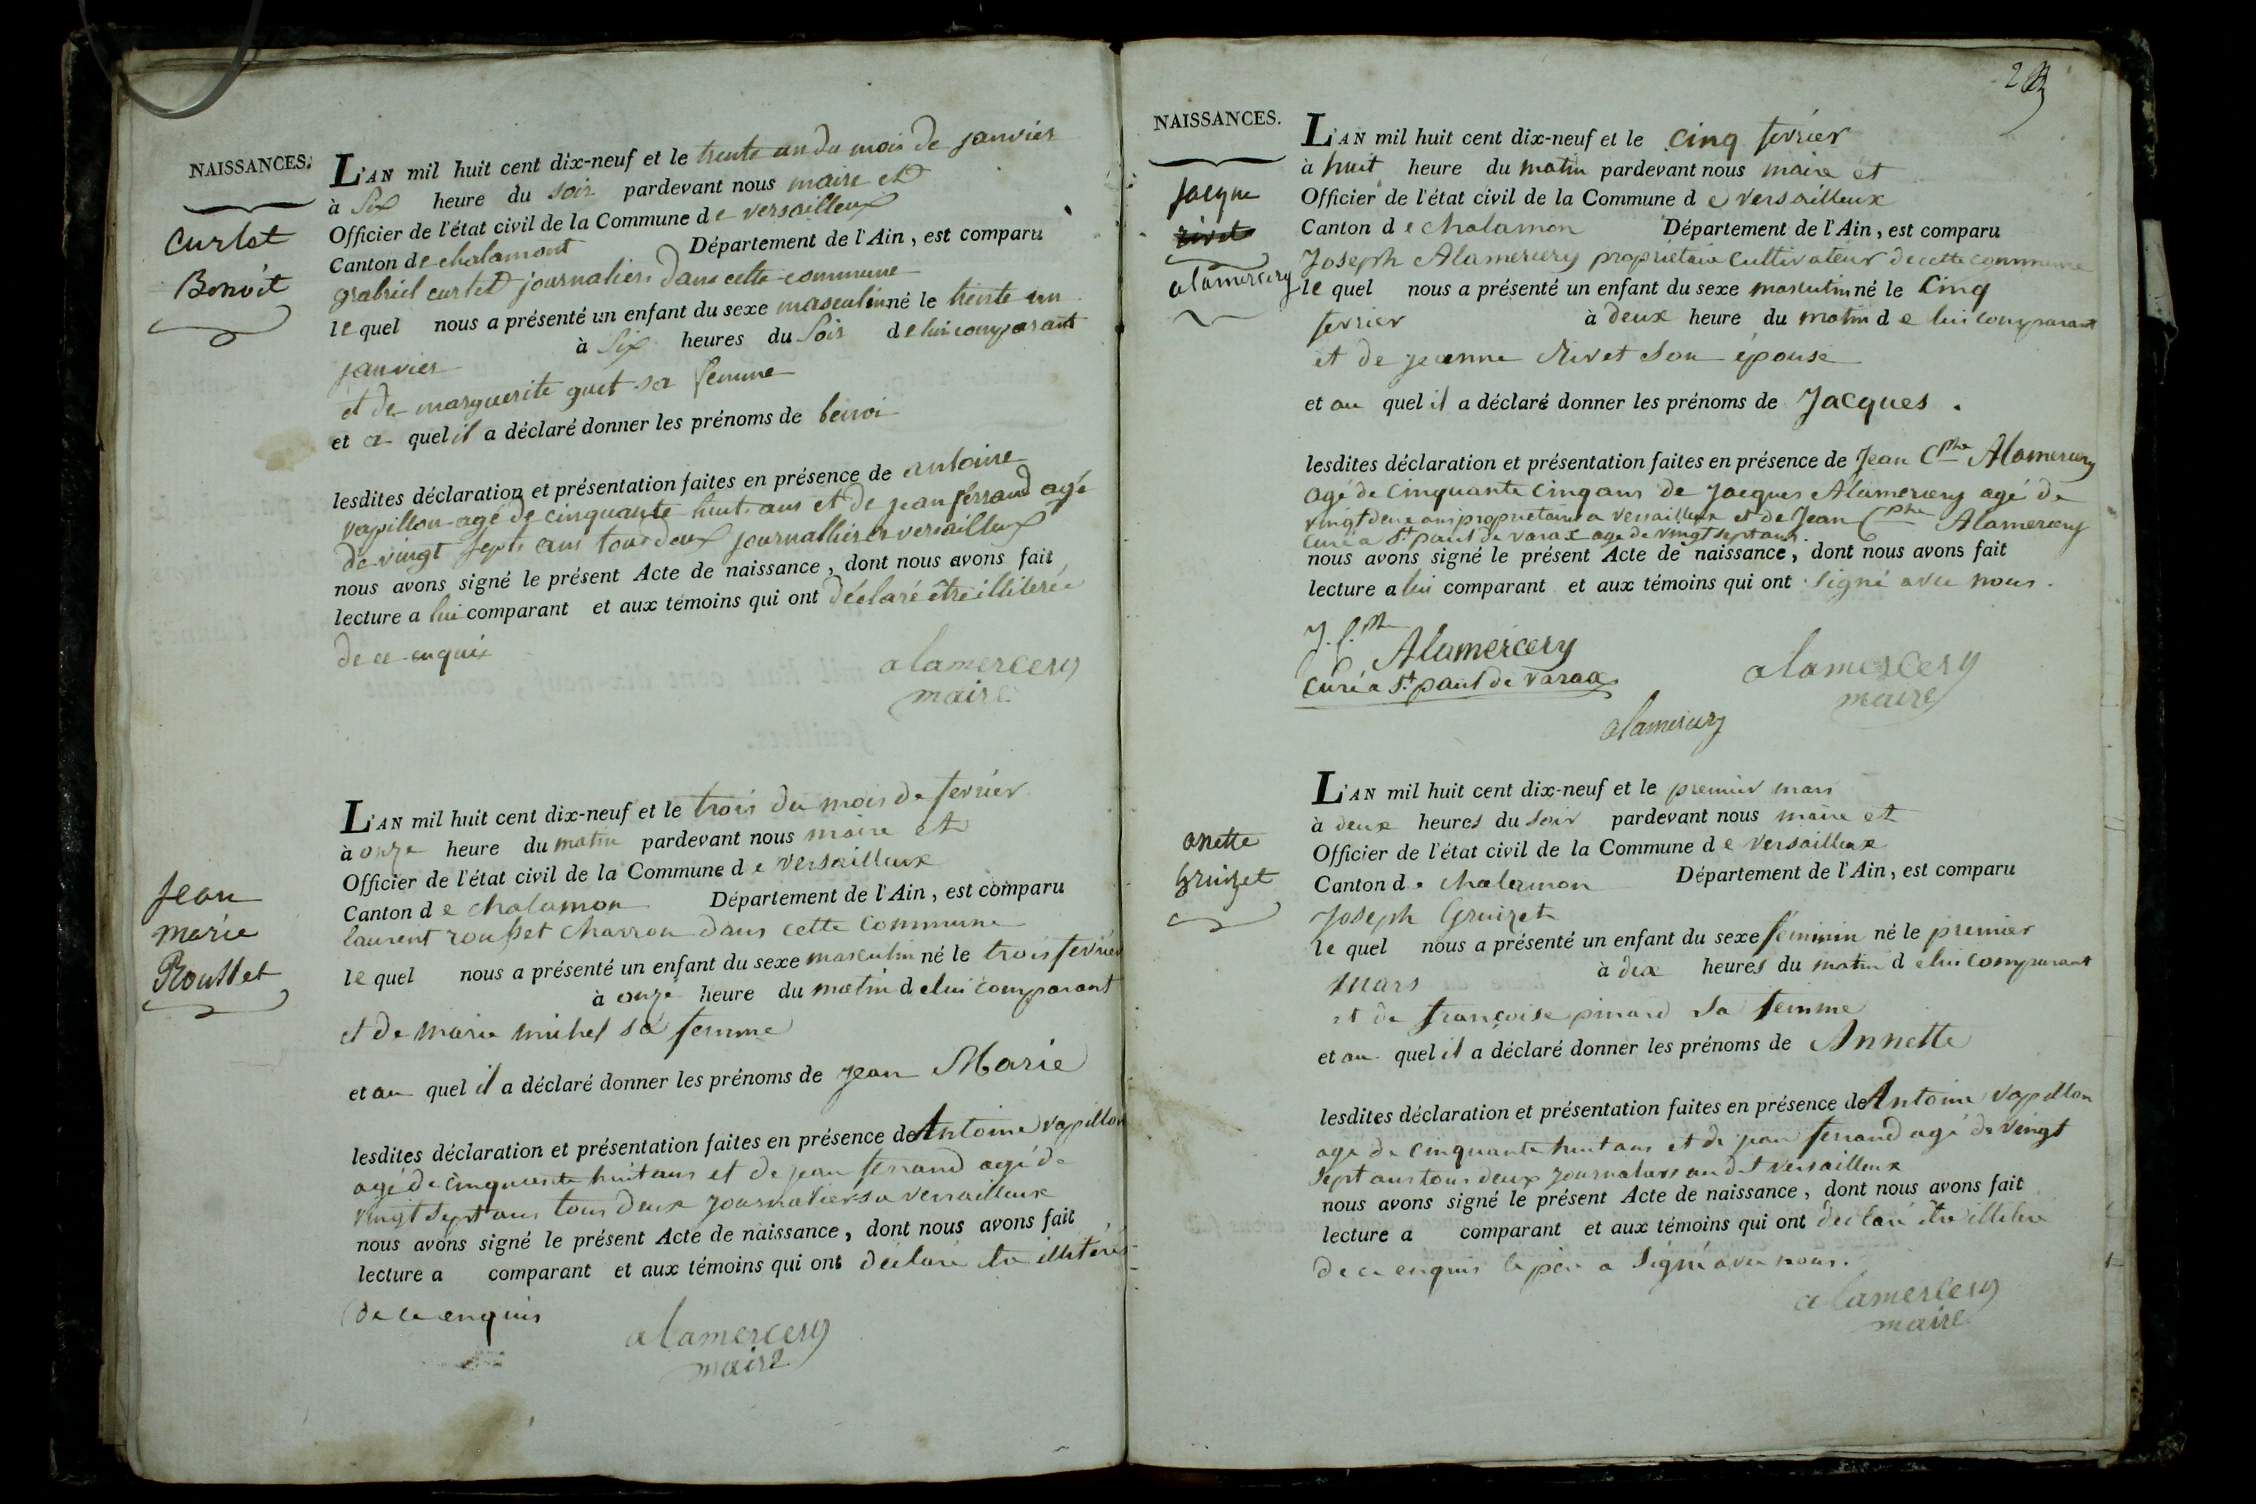 NAISSANCES.
Curlet
Benoit
L'AN mil huit cent dix-neuf et le trente un du mois de janvier
à six heure du soir pardevant nous maire et
Officier de l'état civil de la Commune de versailleux
Canton de chalamont Département de l'Ain, est comparu
gabriel curlet journalier dans cette commune
le quel nous a présenté un enfant du sexe masculin né le trente un
janvier à six heures du soir de lui comparant
et de marguerite guet sa femme
et a quel il a déclaré donner les prénoms de benoi
lesdites déclaration et présentation faites en présence de antoine
vapillon agé de cinquante huit ans et de jean ferrand agé
de vingt septs ans tous deux journallier a versailleux
nous avons signé le présent Acte de naissance, dont nous avons fait
lecture a lui comparant et aux témoins qui ont déclaré être illiterée
de ce enquis
alamercery
maire
Jean
marie
Rousset
L'AN mil huit cent dix-neuf et le trois du mois de fevrier
à onze heure du matin pardevant nous maire et
Officier de l'état civil de la Commune de versailleux
Canton de chalamon Département de l'Ain, est comparu
laurent rousset charron dans cette commune
le quel nous a présenté un enfant du sexe masculin né le trois fevrier
à onze heure du matin de lui comparant
et de marie michel sa femme
et au quel il a déclaré donner les prénoms de jean Marie
lesdites déclaration et présentation faites en présence de Antoine vapillon
agé de cinquante huit ans et de jean ferrand agé de
vingt sept ans tous deux journaliers a versailleux
nous avons signé le présent Acte de naissance, dont nous avons fait
lecture a comparant et aux témoins qui ont déclaré etre illiterés
de ce enquis
alamercery
maire
NAISSANCES.
Jacque
rivet
alamercery
L'AN mil huit cent dix-neuf et le cinq fevrier
à huit heure du matin pardevant nous maire et
Officier de l'état civil de la Commune de versailleux
Canton de chalamon Département de l'Ain, est comparu
Joseph Alamercery propriétaire cultivateur de cette commune
le quel nous a présenté un enfant du sexe masculin né le cinq
fevrier à deux heure du matin de lui comparant
et de jeanne Rivet son épouse
et au quel il a déclaré donner les prénoms de Jacques.
lesdites déclaration et présentation faites en présence de Jean Cphe Alamercery
agé de cinquante cinq ans de Jacques Alamercery agé de
vingt deux ans propriétaires a versailleux et de Jean Cphe Alamercery
curé a St paul de varax agé de vingt sept ans
nous avons signé le présent Acte de naissance, dont nous avons fait
lecture a lui comparant et aux témoins qui ont signé avec nous.
J. C.ph
Alamercery
curé a St paul de varax
alamercery
maire
alamercery
anette
gruizet
L'AN mil huit cent dix-neuf et le premier mars
à deux heures du soir pardevant nous maire et
Officier de l'état civil de la Commune de versailleux
Canton de chalamon Département de l'Ain, est comparu
Joseph Gruizet
le quel nous a présenté un enfant du sexe féminin né le premier
mars à dix heures du matin de lui comparant
et de françoise pinard sa femme
et au quel il a déclaré donner les prénoms de Annette
lesdites déclaration et présentation faites en présence de Antoine vapillon
agé de cinquante huit ans et de jean ferrand agé de vingt
sept ans tous deux journaliers au dit versailleux
nous avons signé le présent Acte de naissance, dont nous avons fait
lecture a comparant et aux témoins qui ont déclaré etre illitere
de ce enquis le père a signé avec nous.
alamercery
maire